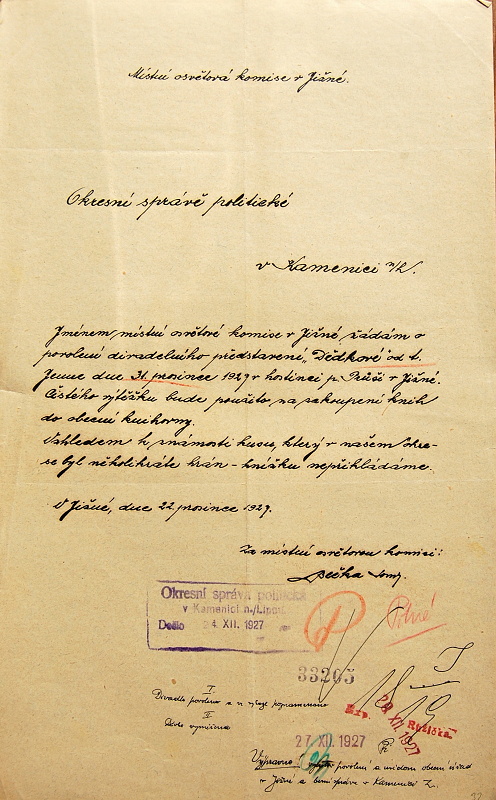 Místní osvětová komise v Jižné.
Okresní správě politické
v Kamenici n/L.
Jménem místní osvětové komise v Jižné žádám o
povolení divadelního představení „Dědkové" od t.
dne 31. prosince 1927 v hostinci p. v Jižné.
Čistého výtěžku bude použito na zakoupení knih
do obecní knihovny.
Vzhledem k známosti kusu, který v našem okre-
se byl několikráte hrán - knížku nepřikládáme.
V Jižné, dne 22 prosince 1927.
Za místní osvětovou komisi:
Okresní správa politická
v Kamenici n./Lipou
Došlo 24. XII. 1927
P
33265
I.
Divadlo povoleno a
II.
27. XII. 1927
povolení a uvědom. obecní úřad
v Jižné a berní správa v Kamenici L.